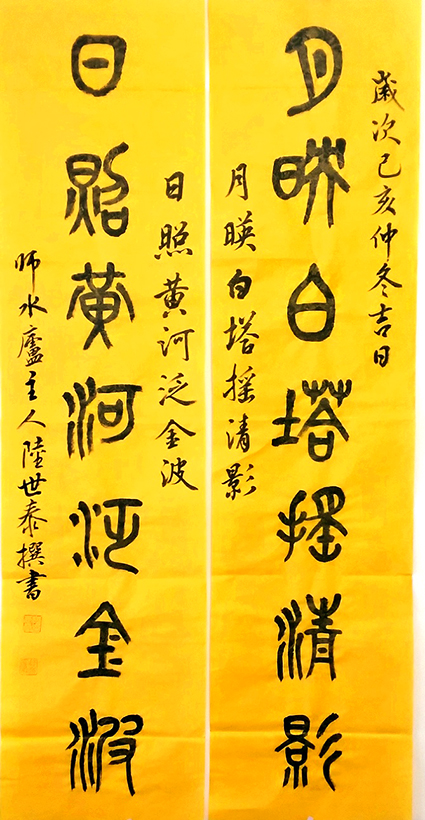 歲次己亥仲冬吉日
月映白塔摇清影
月暎白塔摇清影
日照黄河泛金波
日照黄河泛金波
师水廬主人陸世泰撰書